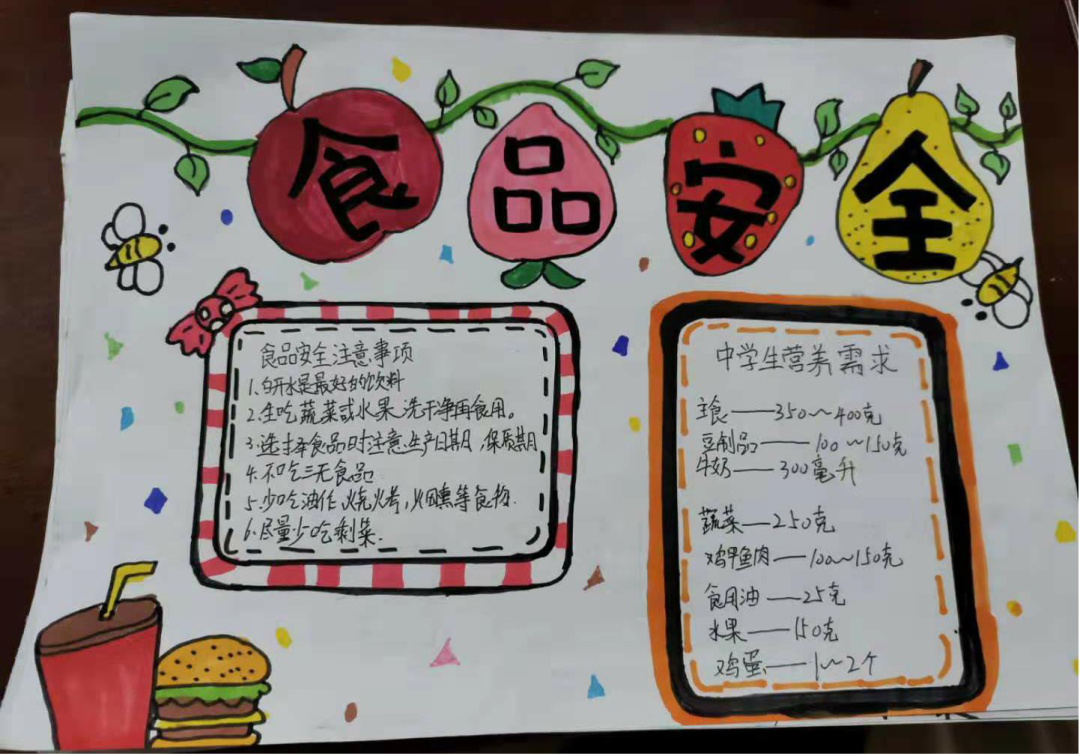 食品安全
食品安全注意事项
1.白开水是最好的饮料
2.生吃蔬菜或水果洗干净再食用。
3.选择食品时注意生产日期,保质期
4.不吃三无食品
5.少吃油炸,烧烤,烟熏等食物.
6.尽量少吃剩菜.
中学生营养需求
主食——350~400克
豆制品——100~150克
牛奶——300毫升
蔬菜—250克
鸡鱼肉——100~150克
食用油——25克
水果——150克
鸡蛋——1~2个